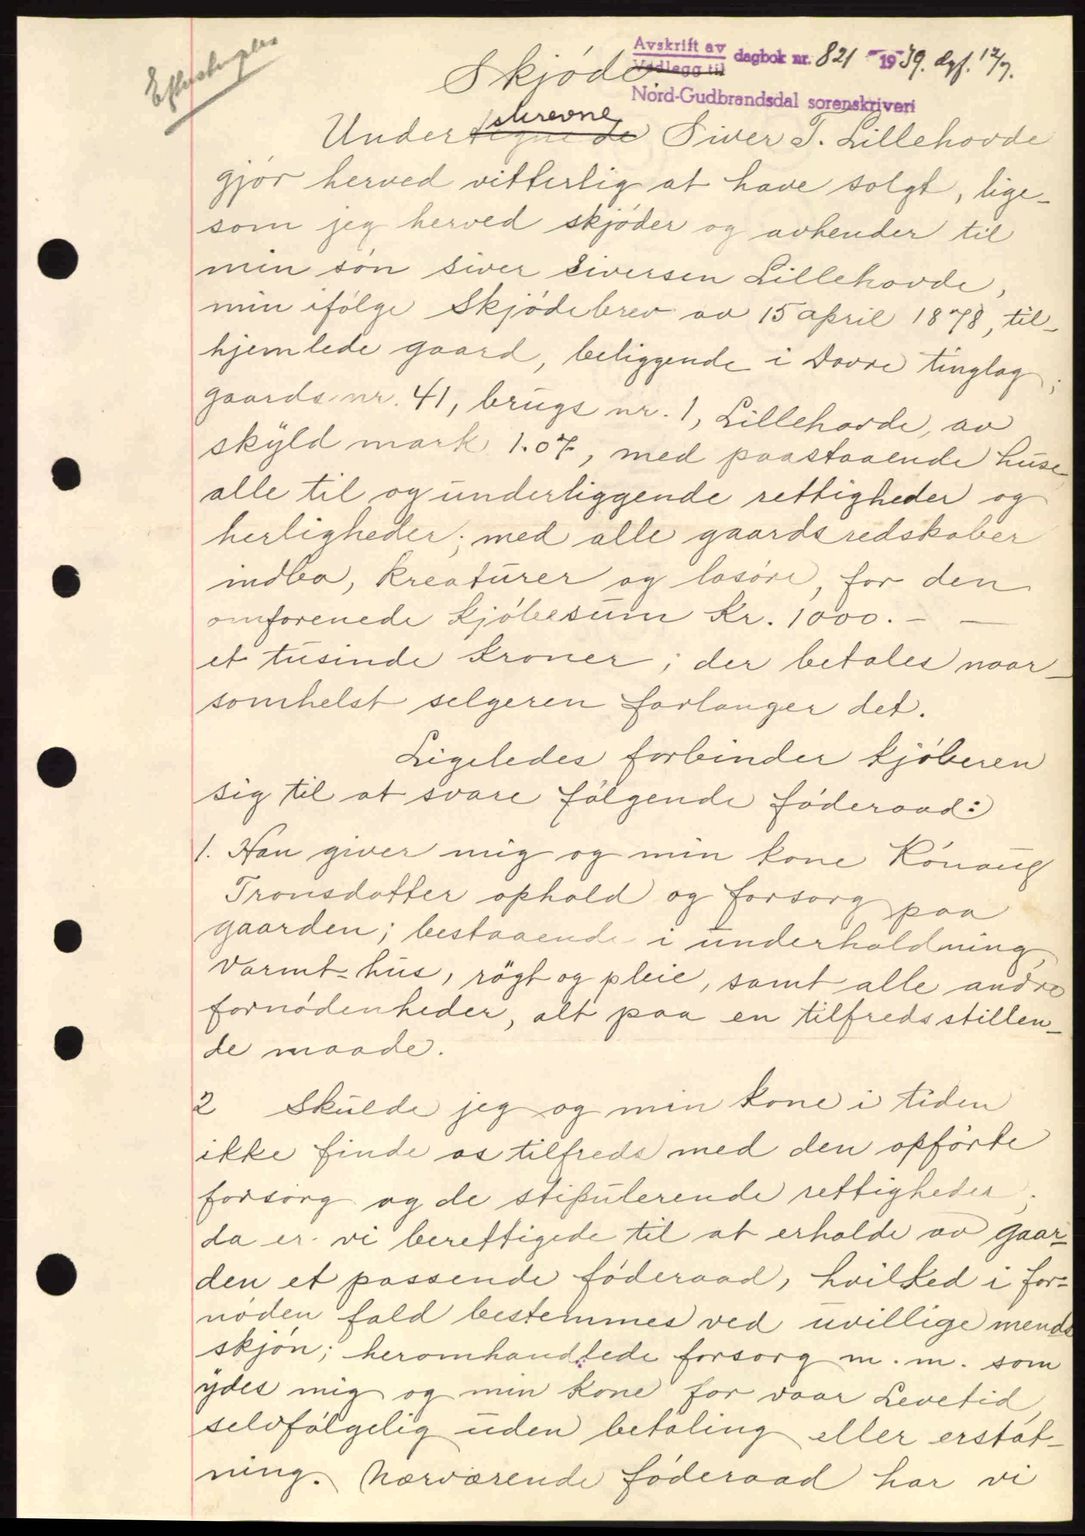 Efterstemples
Avskrift av
Vedlagg til dagbok nr. 821 - 1939. dgf. 12/7.
Nord-Gudbrandsdal sorenskriveri
Skjøde.
skrevne
Undertegnede Siver T. Lillehovde
gjør herved vitterlig at have solgt, lige-
som jeg herved skjøder og avhender til
min søn Siver Siversen Lillehovde,
min ifølge Skjødebrev av 15 april 1878, til-
hjemlede gaard, beliggende i Dovre tinglag;
gaards nr. 41, brugs nr. 1, Lillehovde, av
skyld mark 1.07, med paastaaende huse
alle til og underliggende rettigheder og
herligheder; med alle gaardsredskaber
indbo, kreaturer og løsøre, for den
omforenede kjøbesum Kr. 1000. - -
et tusinde kroner; der betales naar-
somhelst selgeren forlanger det.
Ligeledes forbinder kjøberen
sig til at svare følgende føderaad:
1. Han giver mig og min kone Rønaug
Tronsdatter ophold og forsorg paa
gaarden; bestaaende i underholdning,
varmt-hus, røgt og pleie, samt alle andre
fornødenheder, alt paa en tilfredsstillen-
de maade.
2 Skulde jeg og min kone i tiden
ikke finde os tilfreds med den opførte
forsorg og de stipulerende rettigheder;
da er vi berettigede til at erholde av gaar-
den et passende føderaad, hvilked i for-
nøden fald bestemmes ved uvillige mends
skjøn; heromhandlede forsorg m. m. som
ydes mig og min kone for vaar Levetid,
selvfølgelig uden betaling eller erstat-
ning. Nærværende føderaad har vi